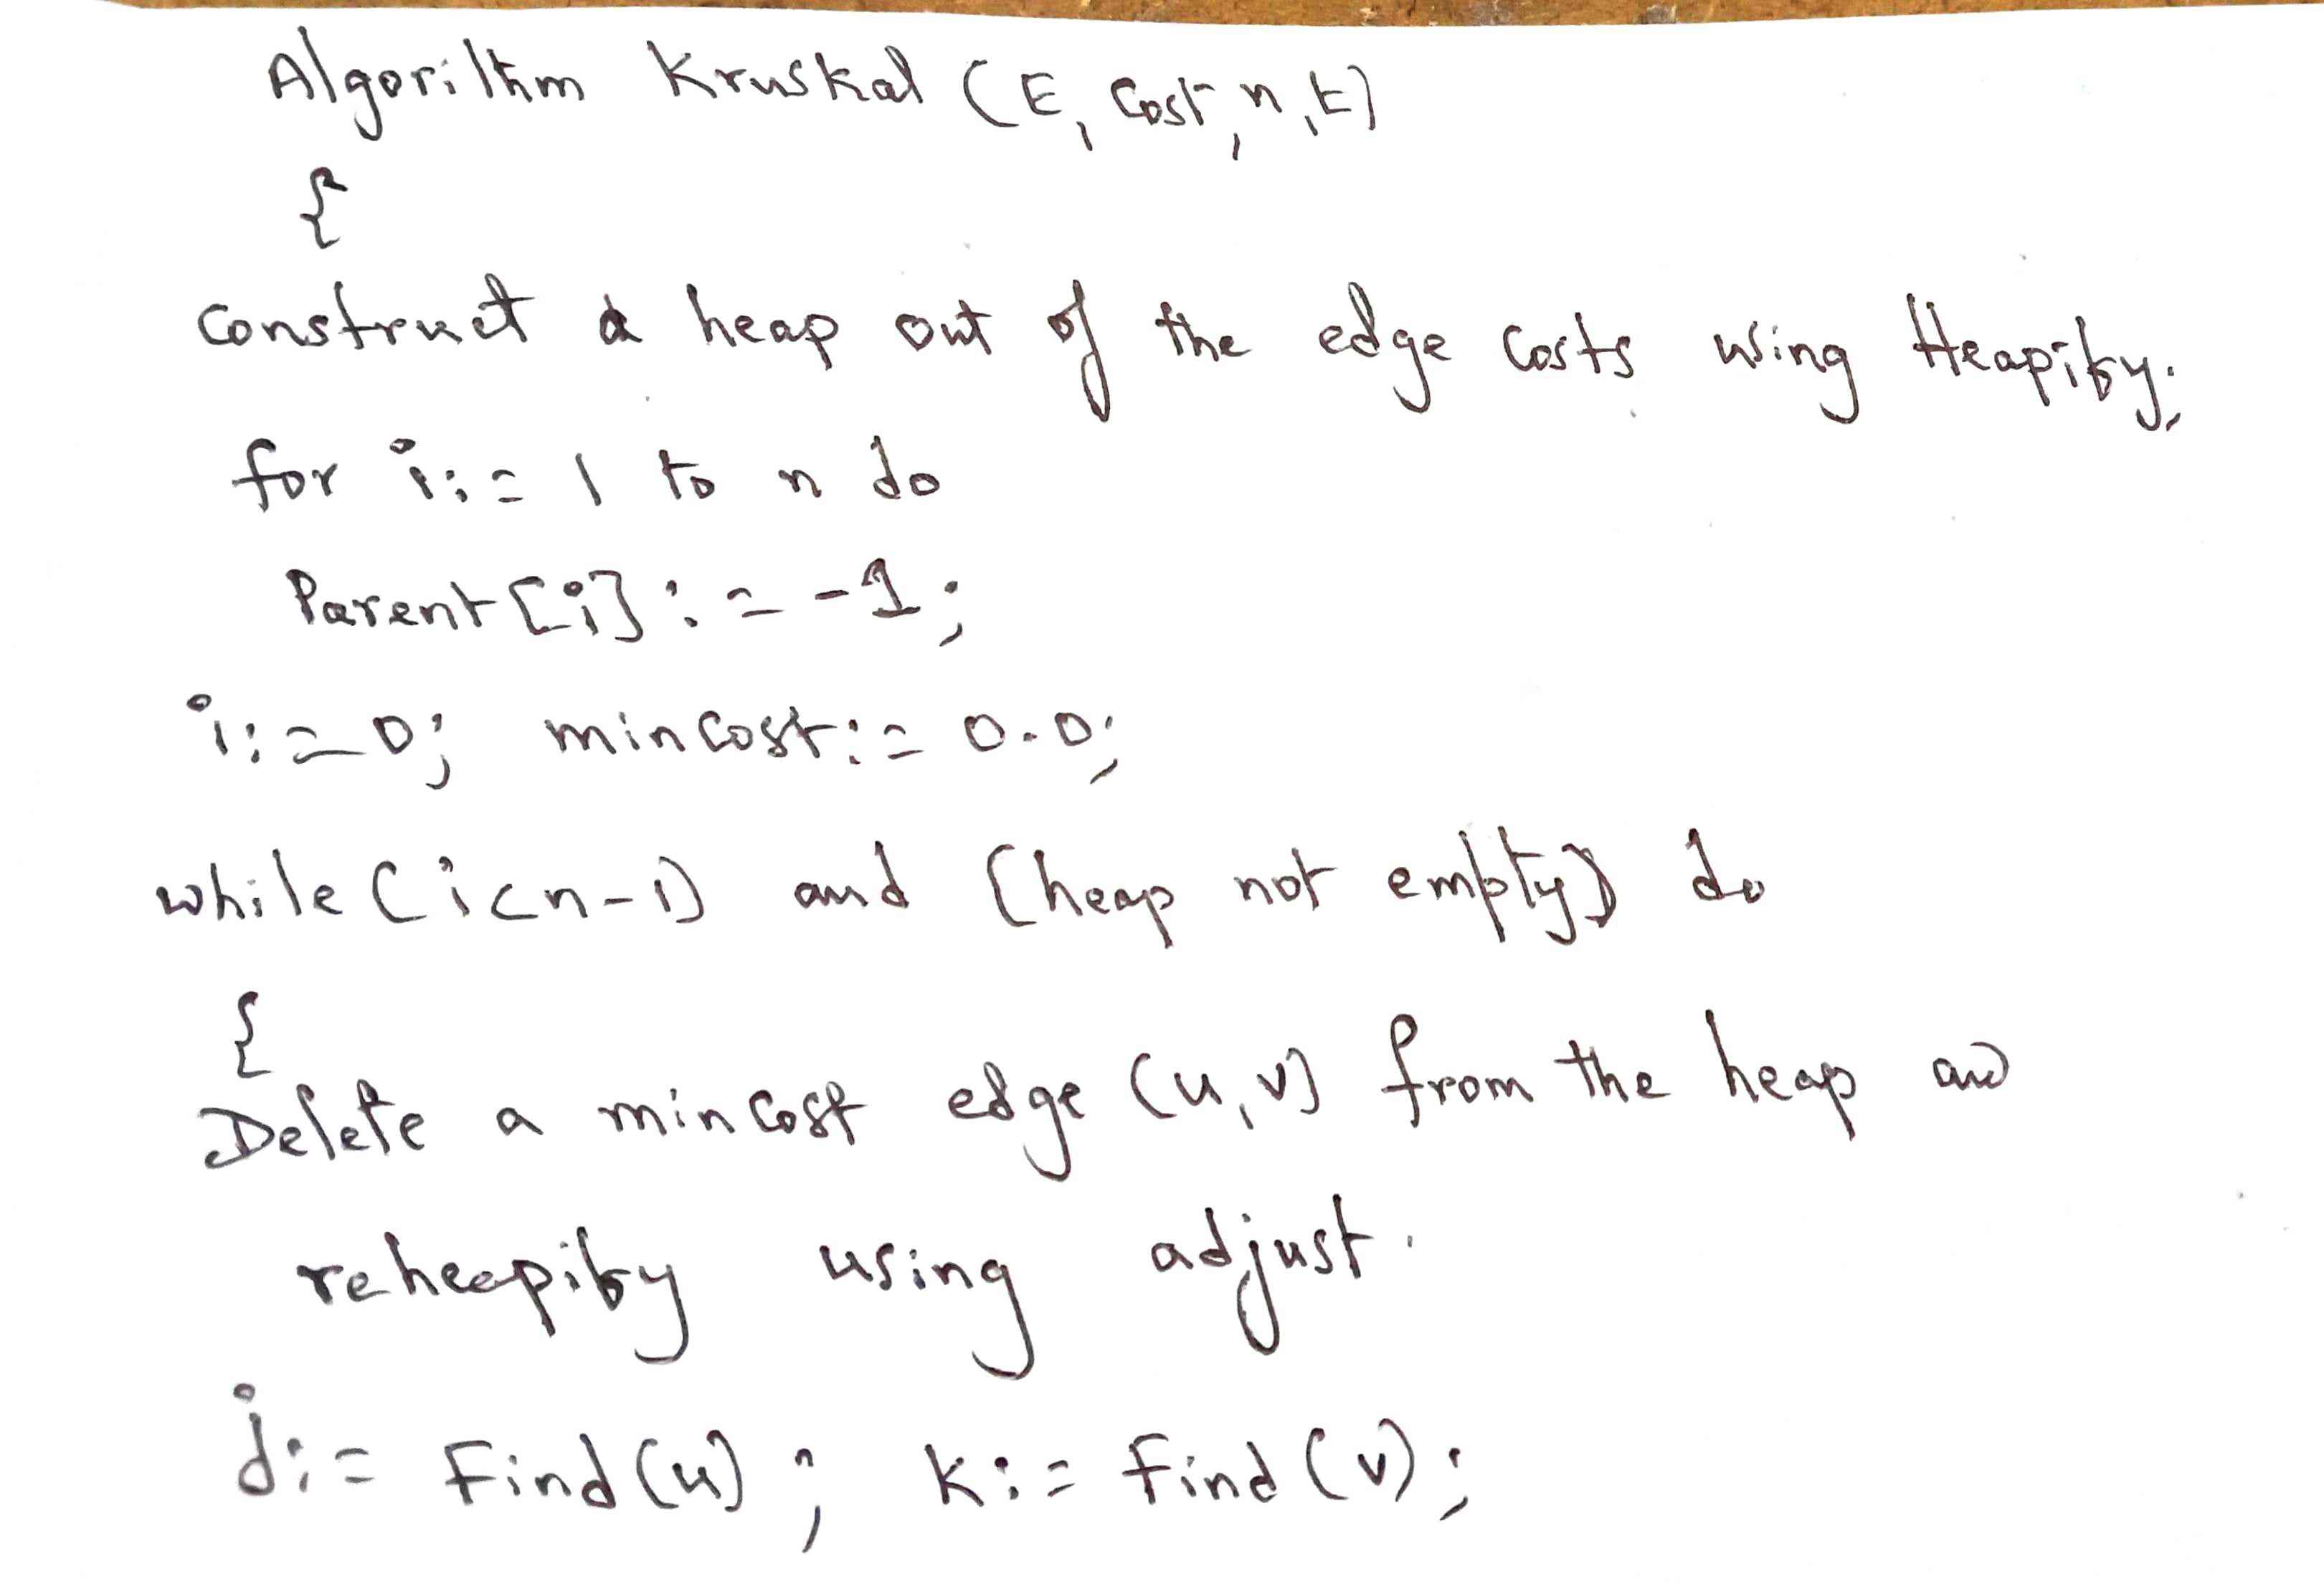 Algorithm Kruskal (E, Cost, n, t)
{
Construct a heap out of the edge costs using Heapify;
for i := 1 to n do
Parent[i] := -1;
i := 0; mincost := 0.0;
while (i < n-1) and (heap not empty) do
{
Delete a mincost edge (u,v) from the heap and
reheapify using adjust.
j := Find(u); k := Find(v);